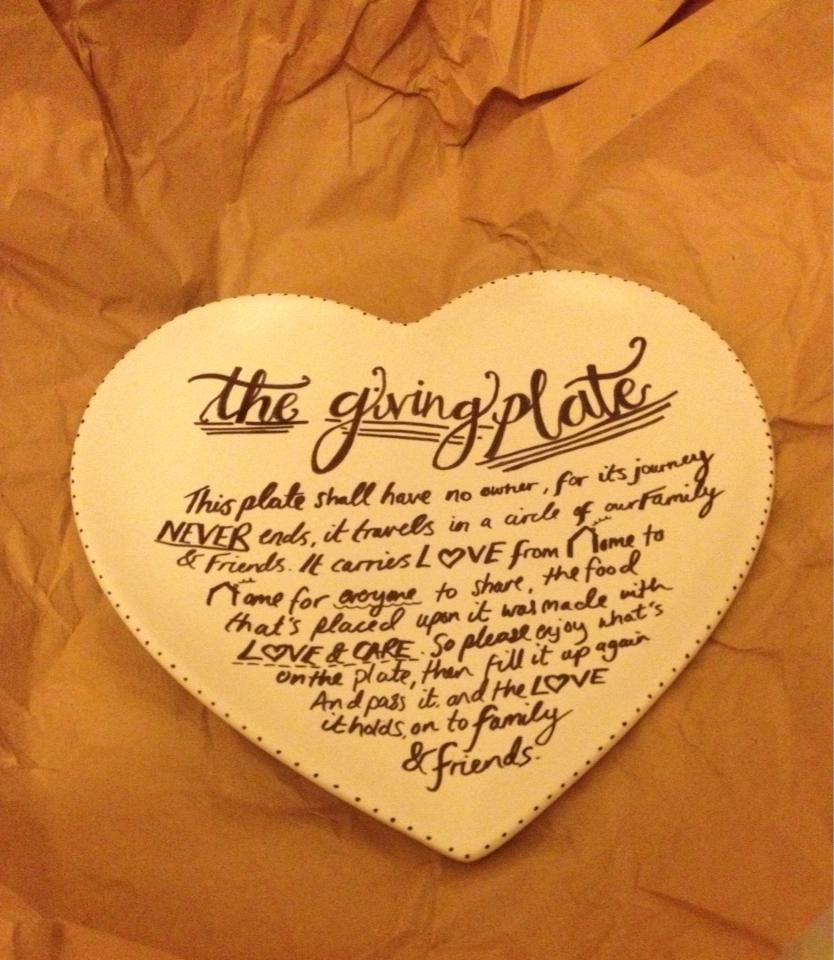 the giving plate
This plate shall have no owner, for its journey
NEVER ends, it travels in a circle of our Family
& Friends. It carries L♡VE from Home to
Home for everyone to share, the food
that's placed upon it was made with
L♡VE & CARE. So please enjoy what's
on the plate, then fill it up again
And pass it, and the L♡VE
it holds, on to family
& friends.